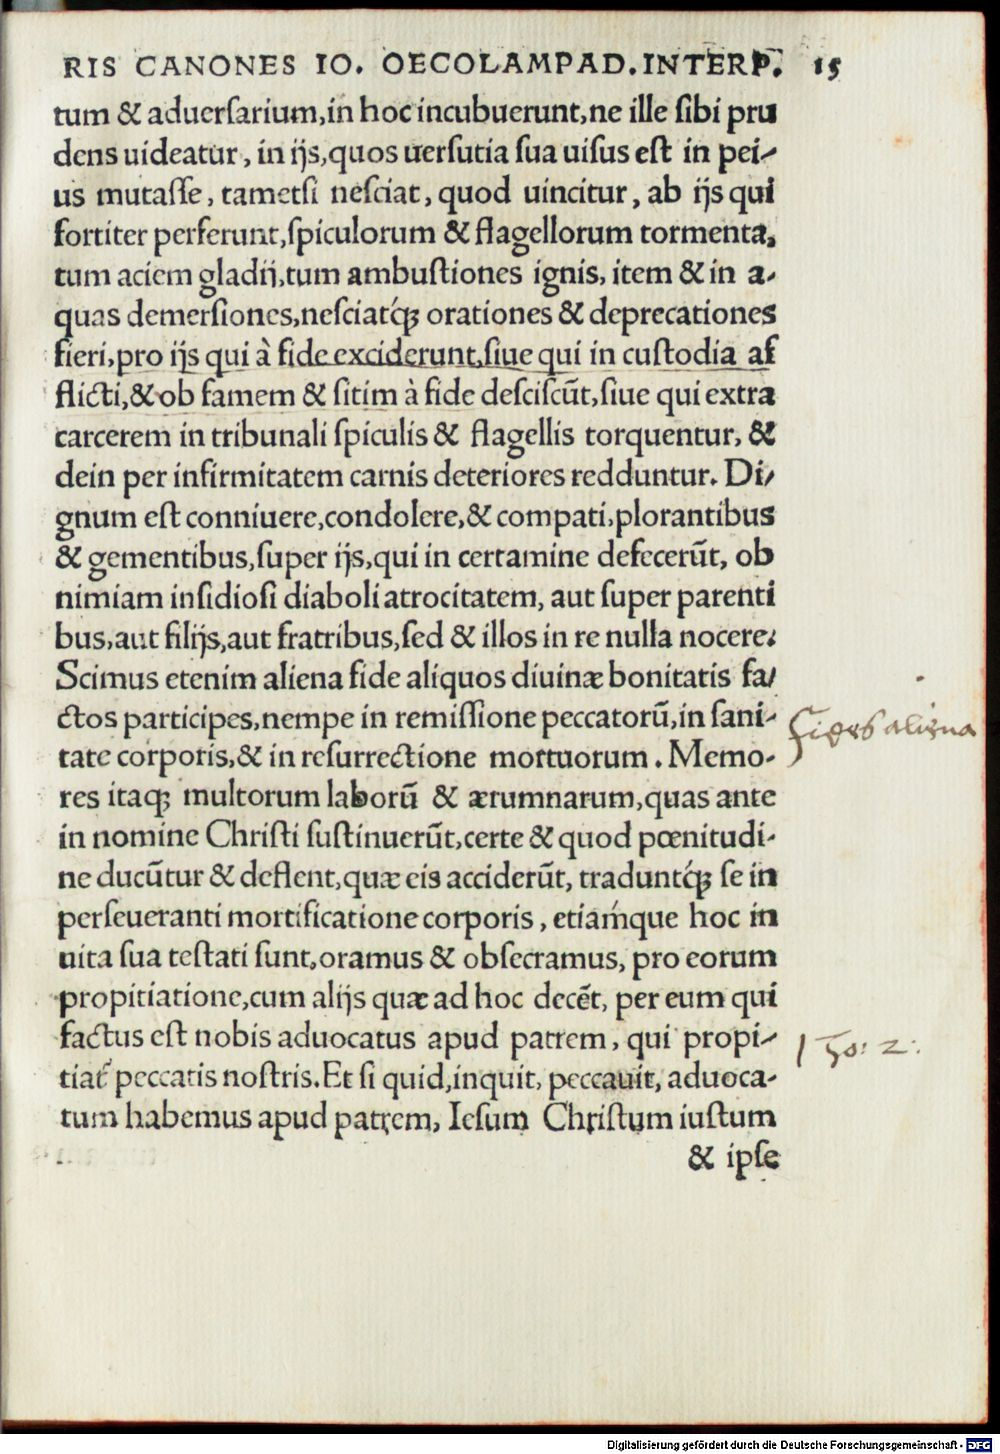 RIS CANONES IO. OECOLAMPAD. INTERP. 15
tum & aduerſarium, in hoc incubuerunt, ne ille ſibi pru
dens uideatur, in ijs, quos uerſutia ſua uiſus eſt in pei-
us mutaſſe, tametſi neſciat, quod uincitur, ab ijs qui
fortiter perferunt, ſpiculorum & flagellorum tormenta,
tum aciem gladij, tum ambuſtiones ignis, item & in a-
quas demerſiones, neſciatq́ꝫ orationes & deprecationes
fieri, pro ijs qui à fide exciderunt, ſiue qui in cuſtodia af
flicti, & ob famem & ſitim à fide deſciſcūt, ſiue qui extra
carcerem in tribunali ſpiculis & flagellis torquentur, &
dein per infirmitatem carnis deteriores redduntur. Di-
gnum eſt conniuere, condolere, & compati, plorantibus
& gementibus, ſuper ijs, qui in certamine defecerūt, ob
nimiam inſidioſi diaboli atrocitatem, aut ſuper parenti
bus, aut filijs, aut fratribus, ſed & illos in re nulla nocere.
Scimus etenim aliena fide aliquos diuinæ bonitatis fa-
ctos participes, nempe in remiſſione peccatorū, in ſani-
fides aliena
tate corporis, & in reſurrectione mortuorum. Memo-
res itaqꝫ multorum laborū & ærumnarum, quas ante
in nomine Chriſti ſuſtinuerūt, certe & quod pœnitudi-
ne ducūtur & deflent, quæ eis acciderūt, traduntq́ꝫ ſe in
perſeueranti mortificatione corporis, etiaḿque hoc in
uita ſua teſtati ſunt, oramus & obſecramus, pro eorum
propitiatione, cum alijs quæ ad hoc decēt, per eum qui
factus eſt nobis aduocatus apud patrem, qui propi-
1 Jo: 2:
tiat᷑ peccatis noſtris. Et ſi quid, inquit, peccauit, aduoca-
tum habemus apud patrem, Ieſum Chriſtum iuſtum
& ipſe
Digitalisierung gefördert durch die Deutsche Forschungsgemeinschaft - DFG